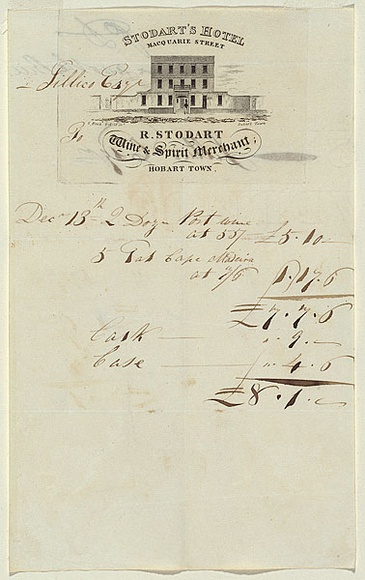 STODART'S HOTEL
MACQUARIE STREET
Gillies Esqr
To
R. STODART
Wine & Spirit Merchant,
HOBART TOWN.
Decr 13th 2 Dozn Port wine
at 55/- £5.10 —
5 Gal Cape Madeira
at 7/6 1.17.6
£7.7.6
Cask — „ 9. —
Case — „ 4.6
£8.1.—